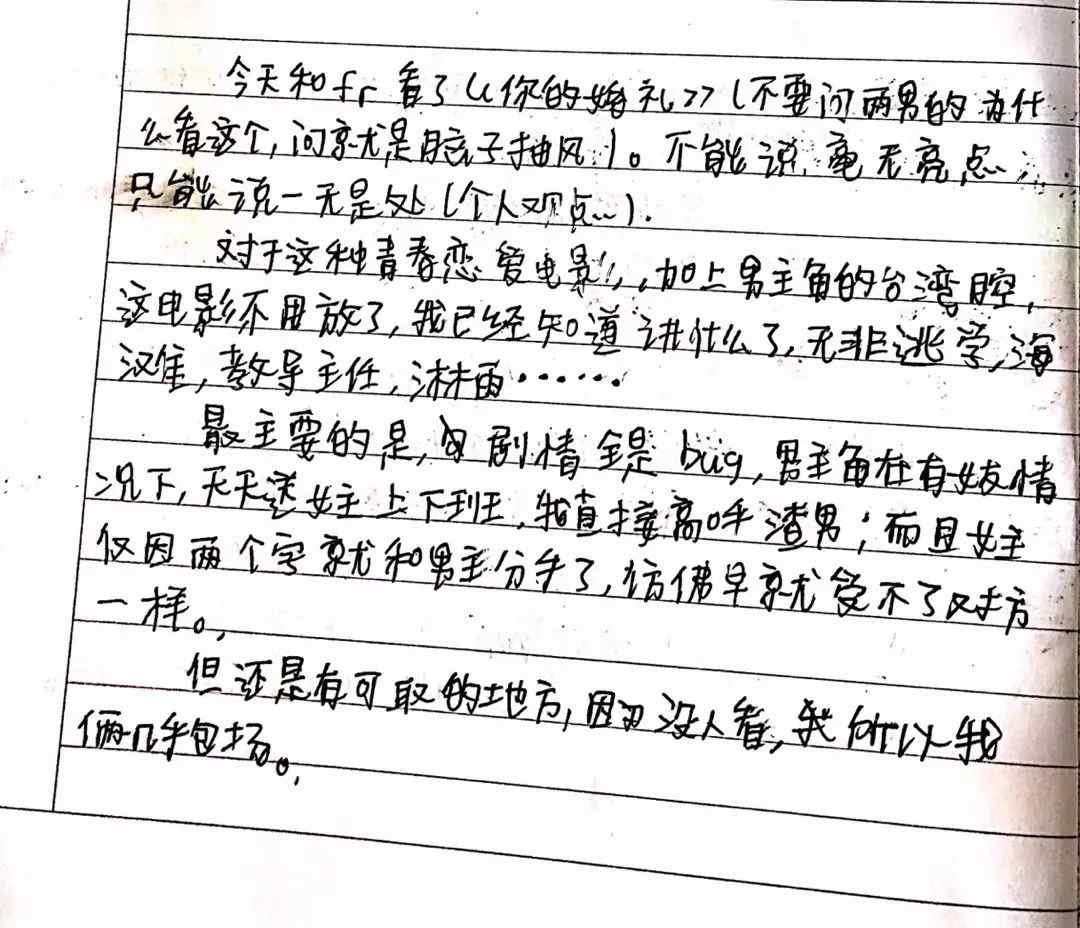 今天和fr看了《你的婚礼》(不要问两男的为什
么看这个,问就是脑子抽风)。不能说毫无亮点,
只能说一无是处(个人观点).
对于这种青春恋爱电影,加上男主角的台湾腔,
这电影不用放了,我已经知道讲什么了,无非逃学,海
汉堡,教导主任,淋雨……
最主要的是,剧情全是bug,男主角在有女友情
况下,天天送女主上下班,我直接高呼渣男;而且女主
仅因两个字就和男主分手了,仿佛早就受不了对方
一样。
但还是有可取的地方,因为没人看,所以我
俩几乎包场。